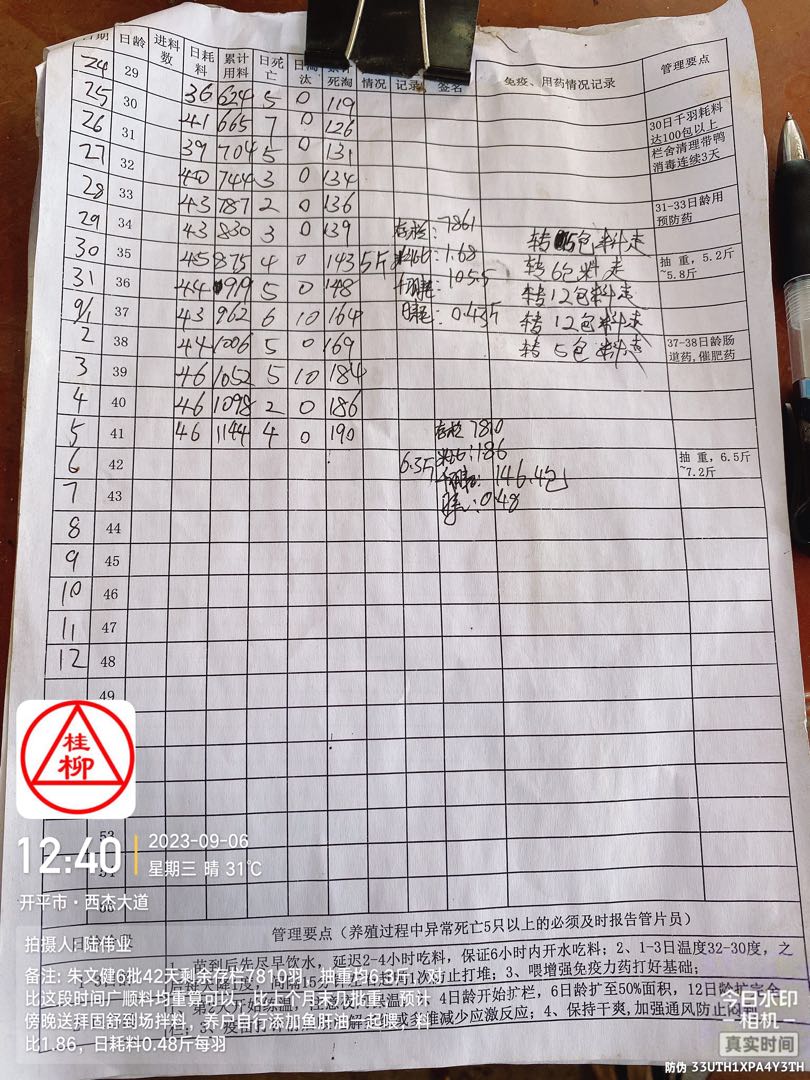 日期 日龄 进料数 日耗料 累计用料 日死亡 日淘汰 累计死淘 情况 记录 签名 免疫、用药情况记录 管理要点
24 29
25 30 36 624 5 0 119
26 31 41 665 7 0 126 30日千羽耗料达100包以上
27 32 39 704 5 0 131 栏舍清理带鸭消毒连续3天
28 33 40 744 3 0 134
29 34 43 787 2 0 136 31-33日龄用预防药
30 35 43 830 3 0 139 存栏:7861 转5包料走
31 36 45 875 4 0 143 5斤 料比:1.68 转6包料走 抽重,5.2斤~5.8斤
9/1 37 44 919 5 0 148 105.5 转12包料走
2 38 43 962 6 10 164 日耗:0.43斤 转12包料走
3 39 44 1006 5 0 169 转5包料走 37-38日龄肠道药,催肥药
4 40 46 1052 5 10 184
5 41 46 1098 2 0 186
6 42 46 1144 4 0 190 存栏 7810
7 43 6.3斤 料比:1.86 抽重,6.5斤~7.2斤
8 44 146.4包
9 45 0.48
10 46
11 47
12 48
49
53
桂柳
12:40
2023-09-06
星期三 晴 31℃
开平市·西杰大道
管理要点(养殖过程中异常死亡5只以上的必须及时报告管片员)
拍摄人:陆伟业
1、苗到后先尽早饮水,延迟2-4小时吃料,保证6小时内开水吃料;2、1-3日温度32-30度,之
防止打堆;3、喂增强免疫力药打好基础;
4日龄开始扩栏,6日龄扩至50%面积,12日龄扩完全
减少应激反应;4、保持干爽,加强通风防止闷
备注:朱文健6批42天剩余存栏7810羽,抽重均6.3斤,对
比这段时间广顺料均重算可以,比五个月末几批重,预计
傍晚送拜固舒到场拌料,养户自行添加鱼肝油一起喂,料
比1.86,日耗料0.48斤每羽
今日水印
相机
真实时间
防伪 33UTH1XPA4Y3TH